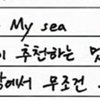 My sea
이 추천하는
무조건